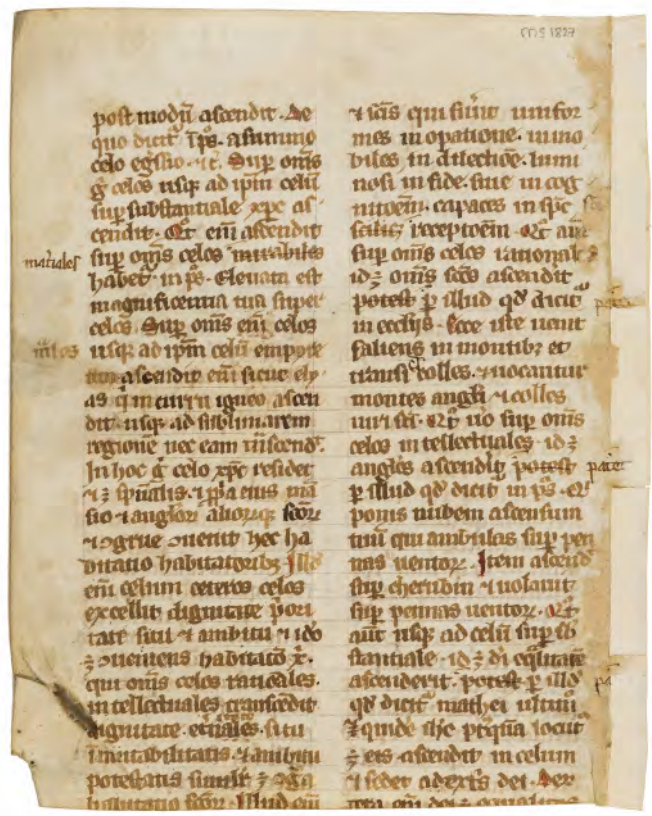 MS 1827
post modū ascendit. De
quo dicit̉ ī ps. a summo
celo egssio. ⁊c̄. Sup̱ om̄s
g̉ celos usq̨ ad ip̄m celū
sup̱ substantiale xp̄c as
cendit. Qt̉ em̄ ascendit
sup̱ om̄s celos
mat̉iales
habet̉ in ps̄. Eleuata est
magnificentia tua super
celos. Sup̱ om̄s em̄ celos
usq̨ ad ip̄m celū empyre
ascendit em̄ sicut ely
as q̉ in curru igneo ascen
dit usq̨ ad sublimarem
regionē nec eam t̄nscend̉.
In hoc g̉ celo xp̄c residet
⁊ ꝫ sp̄ualis. ⁊ p̱p̉a eius mā
sio ⁊ angl̄oꝝ alioꝝq̨ sc̄oꝝ
⁊ ↄgrue ↄuenit hec ha
bitatio habitatoribꝫ. Illd̉
em̄ celum ceteros celos
excellit dignitate p̉ori
tate situ ⁊ ambitu ⁊ id̉o
ꝫ ↄueniens habitatō x̄.
qui om̄s celos rat̄onales.
intellectuales transcēdit
dignitate. situ
īmutabilitatis. ⁊ ambitu
potestatis
habitatio sc̄oꝝ. Illud em̄
⁊ sc̄is qui sunt unifor
mes in op̱atione. inmo
biles in dilectiōe. lumi
nosi in fide. siue in cog
nitōem. capaces in sp̄c
rec̱eptōem. Qt̉ aut̄
sup̱ om̄s celos rational̉
id ꝫ om̄s sc̄os ascendit
potest p̱ illud qd̉ dicit̉
in eccl̄ijs. Ecce iste uenit
saliens in montibꝫ et
transi colles. ⁊ uocantur
montes angl̄i ⁊ colles
uiri sc̄i. Qt̉ u̇o sup̱ om̄s
celos intellectuales id ꝫ
angl̄os ascendit potest patet
p̱ illud qd̉ dicit̉ in ps̄. Q̉
ponis nubem ascensum
tuū qui ambulas sup̱ pen
nas uentoꝝ. Item ascend̉
sup̱ cherubin ⁊ uolauit
sup̱ pennas uentoꝝ. Qt̉
aut̄ usq̨ ad celū sup̱ sb̉
stantiale. id ꝫ di eq̉litatē
ascenderit. potest p̱ illd̉
qd̉ dicit̉ mathei ultim̉
⁊ quidē ih̄c p̉tq̉uā locut̉
ꝫ eis ascendit in celum
⁊ sedet a dextīs dei. Dex